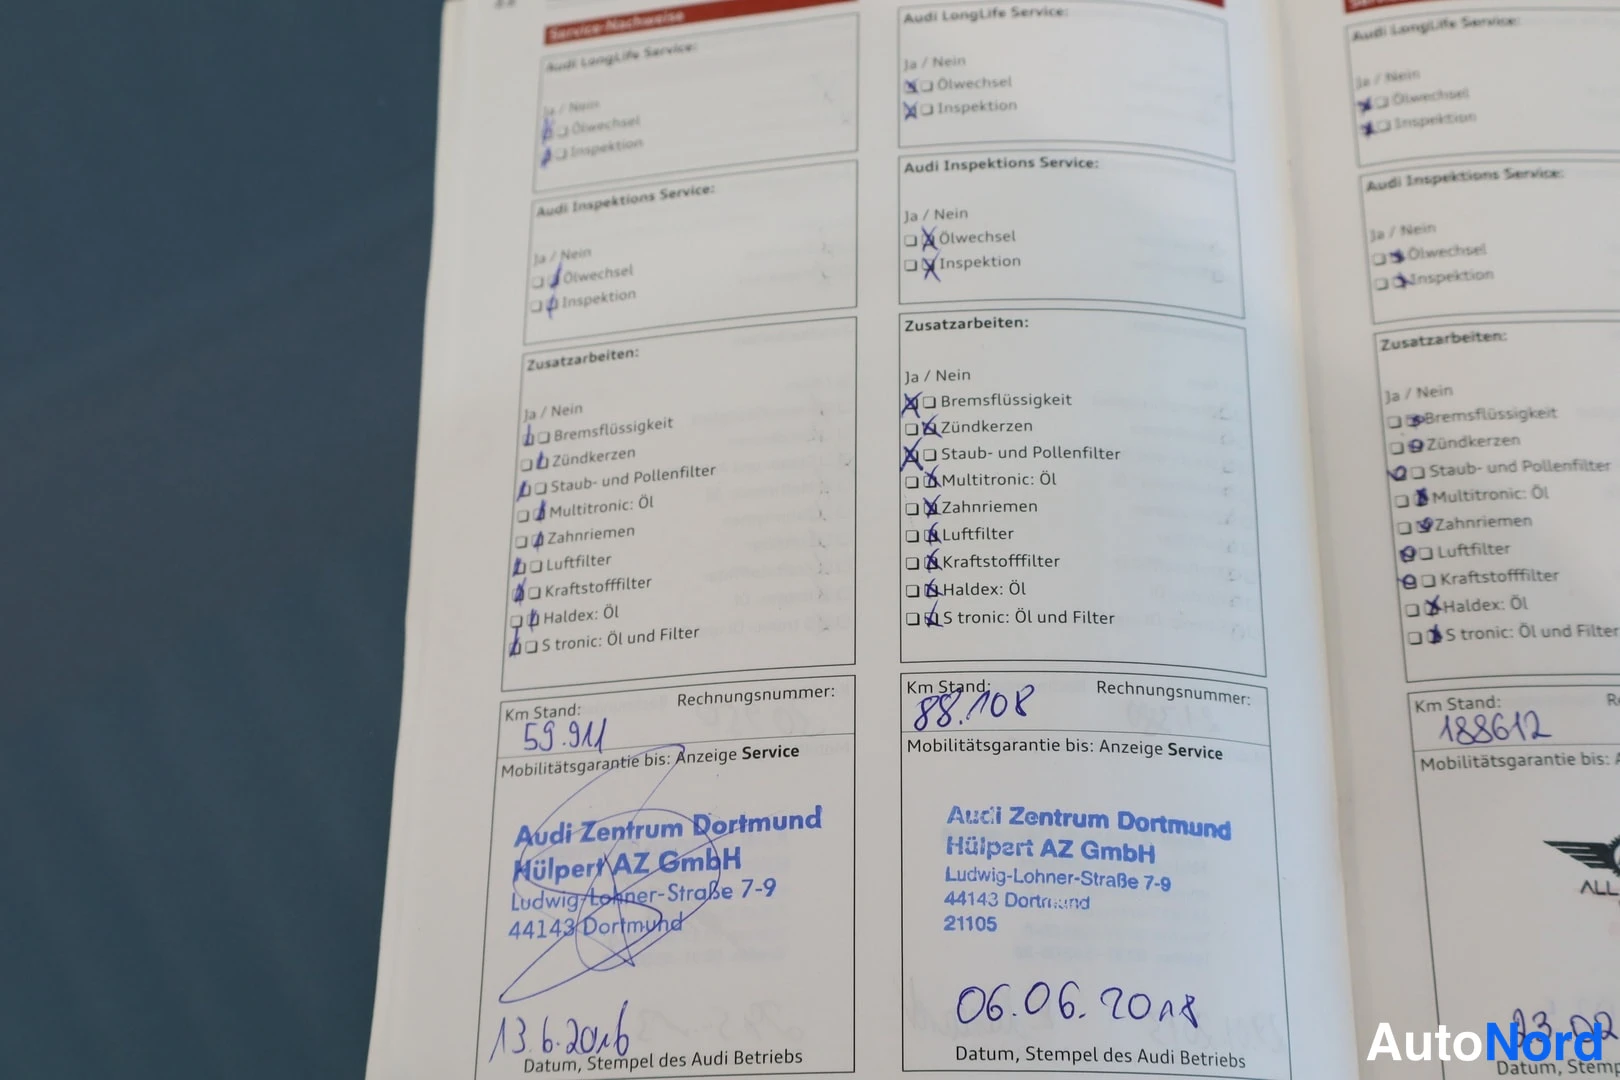 Service-Nachweise
Audi LongLife Service:
Ja / Nein
Ölwechsel
Inspektion
Audi Inspektions Service:
Ja / Nein
Ölwechsel
Inspektion
Zusatzarbeiten:
Ja / Nein
Bremsflüssigkeit
Zündkerzen
Staub- und Pollenfilter
Multitronic: Öl
Zahnriemen
Luftfilter
Kraftstofffilter
Haldex: Öl
S tronic: Öl und Filter
Km Stand: Rechnungsnummer:
59.911
Mobilitätsgarantie bis: Anzeige Service
Audi Zentrum Dortmund
Hülpert AZ GmbH
Ludwig-Lohner-Straße 7-9
44143 Dortmund
13.6.2016
Datum, Stempel des Audi Betriebs
Audi LongLife Service:
Ja / Nein
Ölwechsel
Inspektion
Audi Inspektions Service:
Ja / Nein
Ölwechsel
Inspektion
Zusatzarbeiten:
Ja / Nein
Bremsflüssigkeit
Zündkerzen
Staub- und Pollenfilter
Multitronic: Öl
Zahnriemen
Luftfilter
Kraftstofffilter
Haldex: Öl
S tronic: Öl und Filter
Km Stand: Rechnungsnummer:
88.108
Mobilitätsgarantie bis: Anzeige Service
Audi Zentrum Dortmund
Hülpert AZ GmbH
Ludwig-Lohner-Straße 7-9
44143 Dortmund
21105
06.06.2018
Datum, Stempel des Audi Betriebs
Audi LongLife Service:
Ja / Nein
Ölwechsel
Inspektion
Audi Inspektions Service:
Ja / Nein
Ölwechsel
Inspektion
Zusatzarbeiten:
Ja / Nein
Bremsflüssigkeit
Zündkerzen
Staub- und Pollenfilter
Multitronic: Öl
Zahnriemen
Luftfilter
Kraftstofffilter
Haldex: Öl
S tronic: Öl und Filter
Km Stand:
188612
Mobilitätsgarantie bis:
ALL
Datum,
AutoNord